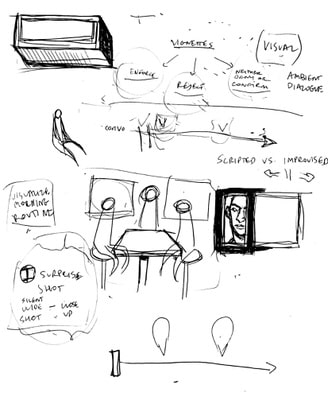 VIGNETTES
(VISUAL)
ENFORCE
REJECT
NEITHER
DENY OR
CONFIRM
AMBIENT
DIALOGUE
CONVO
V
N
V
SCRIPTED VS. IMPROVISED
VISUALIZE
MORNING
ROUTINE
I SURPRISE
SHOT
SILENT
WIDE - CLOSE
SHOT - UP